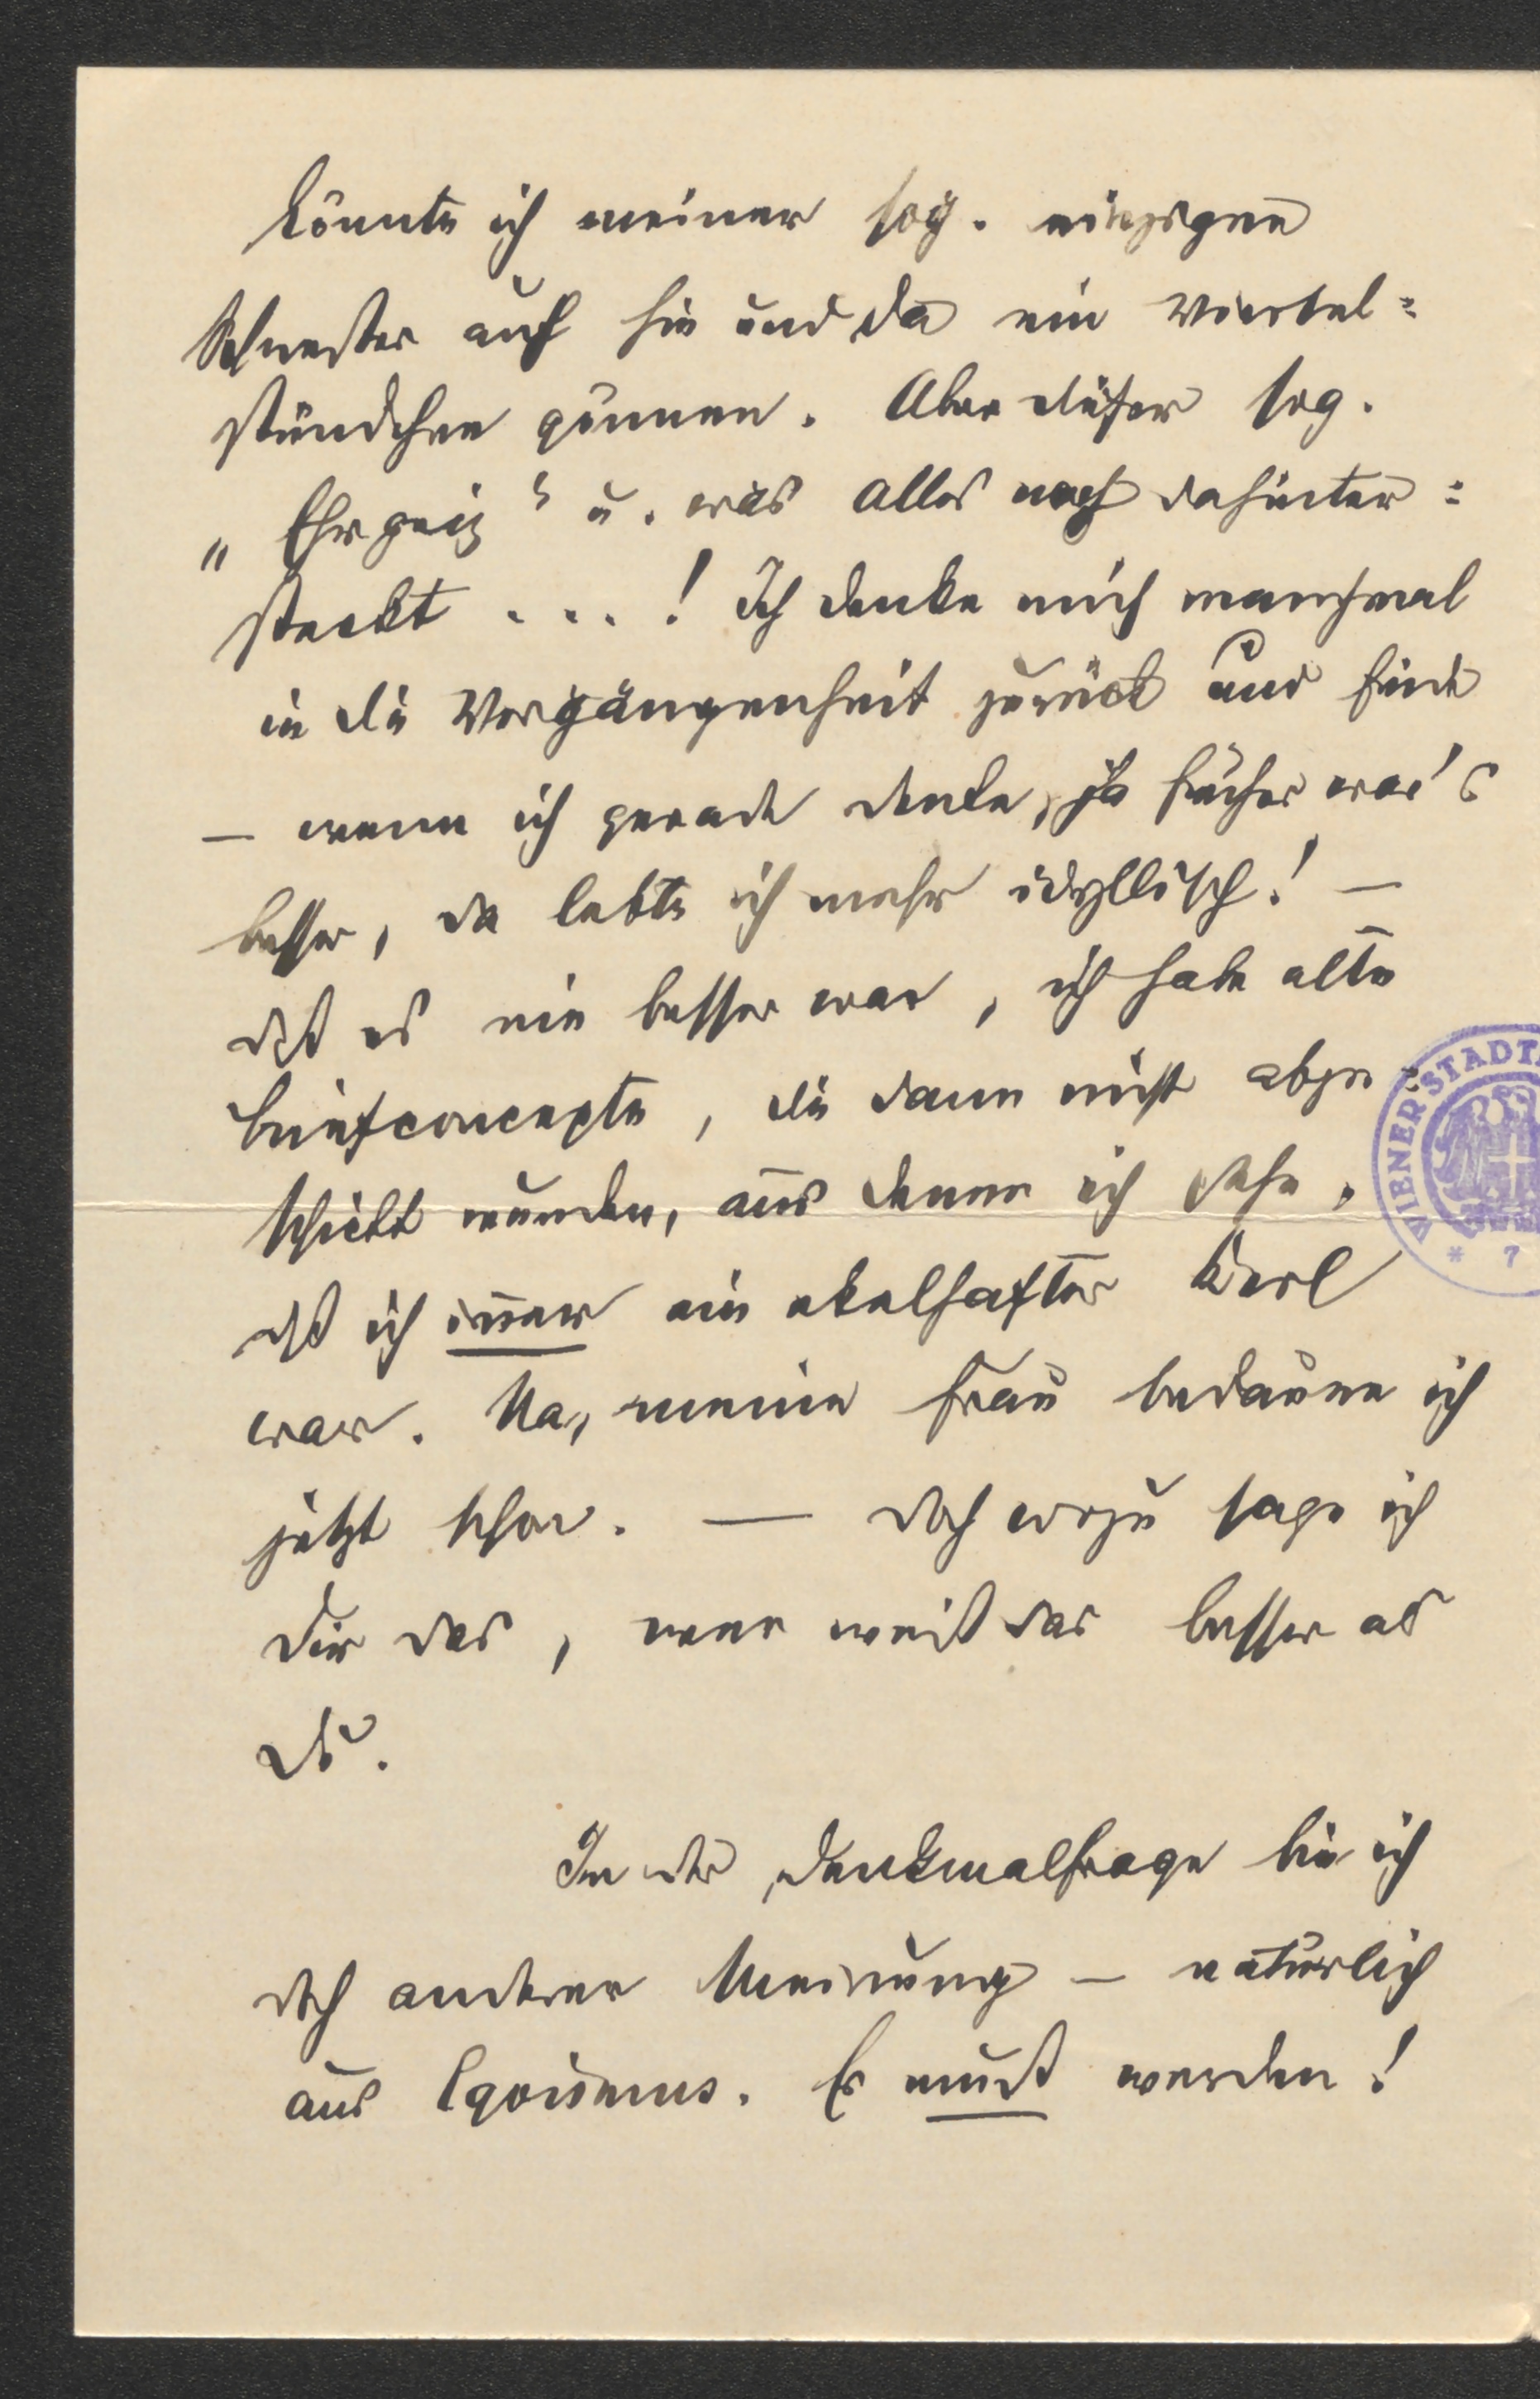 könnte ich meiner sog. einzigen
Schwester auch hie und da ein Viertel=
stündchen gönnen. Aber dieser sog.
„Ehrgeiz“ u. was alles noch dahinter=
steckt . . . ! Ich denke mich manchmal
in die Vergangenheit zurück und finde
— wenn ich gerade denke, ja früher war's
besser, da lebte ich mehr idyllisch! —
daß es nie besser war, ich habe alte
Briefconcepte, die dann nicht abge=
schickt wurden, aus denen ich sehe,
daß ich immer ein ekelhafter Kerl
war. Na, meine Frau bedaure ich
jetzt schon. — Doch wozu sage ich
Dir das, wer weiß das besser als
Du.
In der Denkmalfrage bin ich
doch anderer Meinung — natürlich
aus Egoismus. Es muß werden!
WIENER STADT
* 7